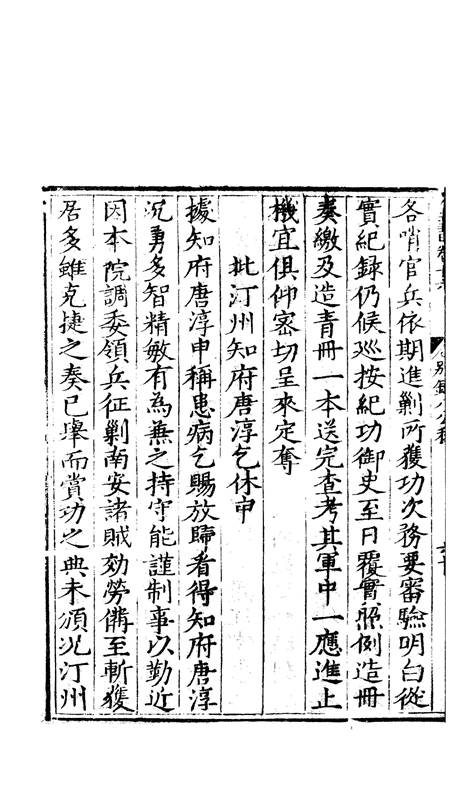 各哨官兵依期進剿所獲功次務要審驗明白從
實紀録仍候巡按紀功御史至日覆實照例造冊
奏繳及造青冊一本送完查考其軍中一應進止
機宜俱仰密切呈來定奪
批汀州知府唐淳乞休申
據知府唐淳申稱患病乞賜放歸看得知府唐淳
沉勇多智精敏有為兼之持守能謹制事以勤近
因本院調委領兵征剿南安諸賊効勞備至斬獲
居多雖克捷之奏已舉而賞功之典未頒況汀州